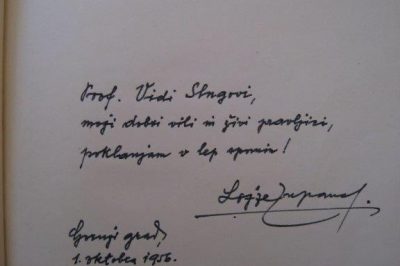 Prof. Vidi Stngovi,
moji dobri vili in živi pravljici,
poklanjam v lep spomin!
Lojze Zupanc
Gornji grad,
1. oktobra 1956.